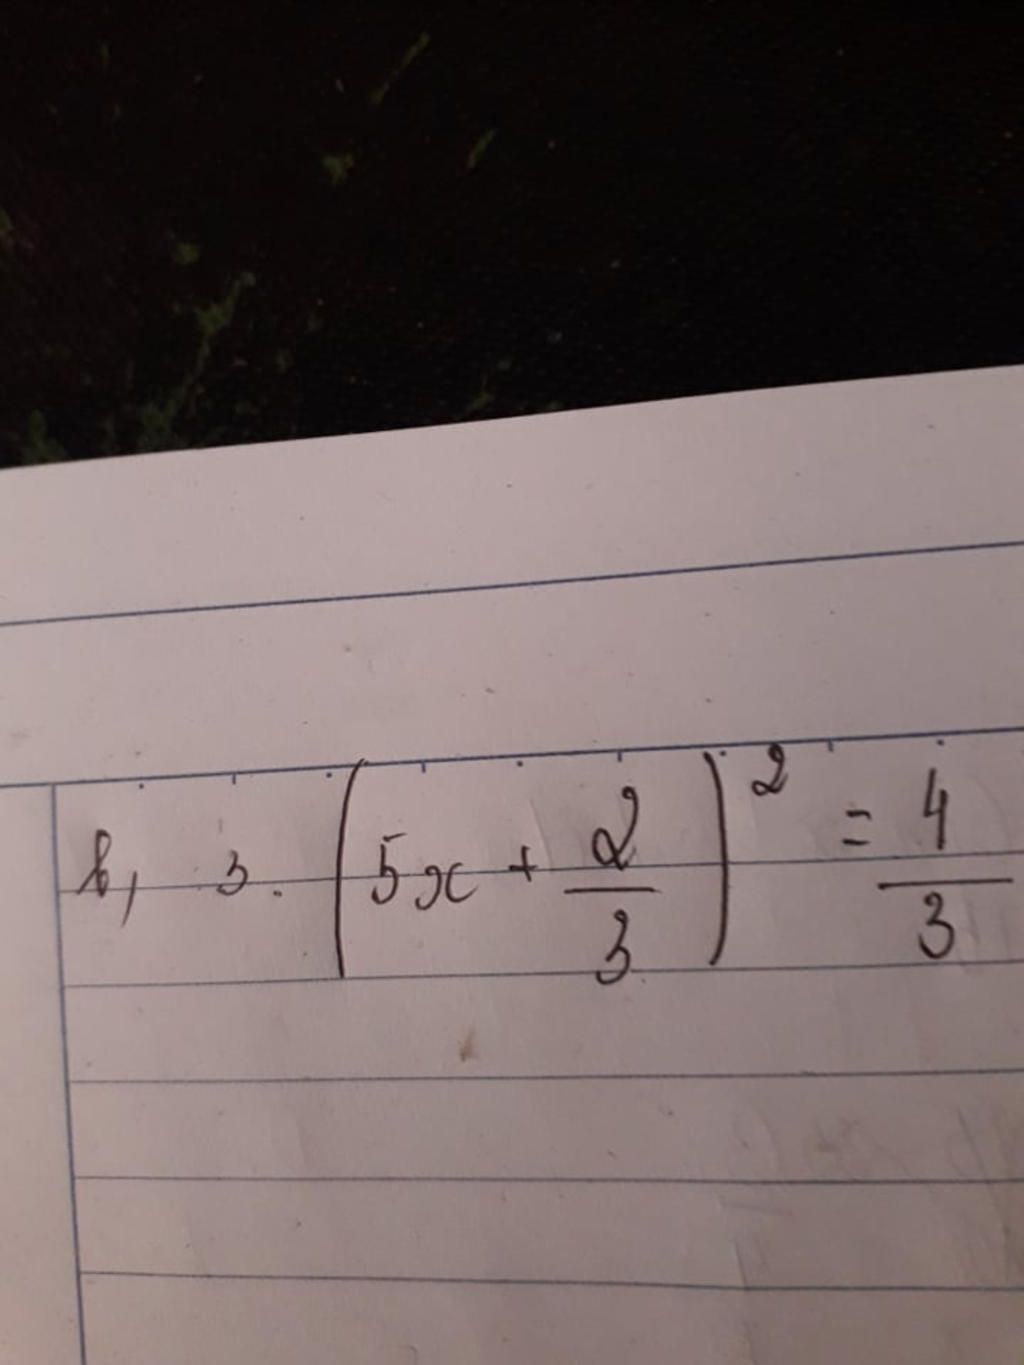 b, 3. (5x + 2/3)² = 4/3